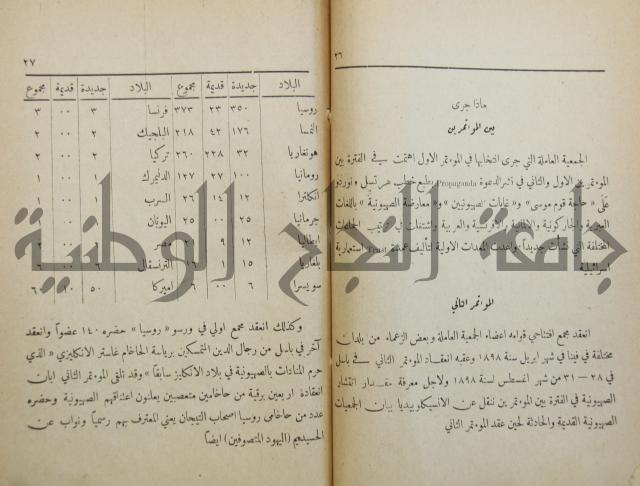 ٢٦
ماذا جرى
بين المؤتمرين
الجمعية العاملة التي جرى انتخابها في المؤتمر الاول اهتمت في الفترة بين
المؤتمرين الاول والثاني في نشر الدعوة Propaganda وطبع خطب هرتسل ونوردو
على « حاجة قوم موسى » و « غايات الصهيونيين » و « معارضة الصهيونية » باللغات
العبرية والجاركونية والالمانية والافرنسية والعربية واشتغلت في الجمعيات
المختلفة التي نشأت جديداً واعدت المعدات الاولية لتأليف عمدة Trust استعمارية
اسرائيلية
المؤتمر الثاني
انعقد مجمع افتتاحي قوامه اعضاء الجمعية العاملة وبعض الزعماء من بلدان
مختلفة في فينا في شهر ابريل سنة ١٨٩٨ وعقبه انعقاد المؤتمر الثاني في باسل
في ٢٨ – ٣١ من شهر اغسطس لسنة ١٨٩٨ ولاجل معرفة مقدار انتشار
الصهيونية في الفترة بين المؤتمرين ننقل عن الانسيكلوبيديا بيان الجمعيات
الصهيونية القديمة والحادثة لحين عقد المؤتمر الثاني
٢٧
البلاد جديدة قديمة مجموع البلاد جديدة قديمة مجموع
روسيا ٣٥٠ ٢٣ ٣٧٣ فرنسا ٣ ٠٠ ٣
النمسا ١٧٦ ٤٢ ٢١٨ البلجيك ٢ ٠٠ ٢
هونغاريا ٣٢ ٢٢٨ ٢٦٠ تركيا ٢ ٠٠ ٢
رومانيا ١٠٠ ٢٧ ١٢٧ الدنيمرك ١ ٠٠ ١
انكلترا ١٢ ١٤ ٢٦ السرب ١ ٠٠ ١
جرمانيا ٢٥ ٠٠ ٢٥ اليونان
ايطاليا ١٢ ٩ ٢١ مصر
بلغاريا ١٥ ١ ١٦ الترنسفال
سويسرا ٦ ٠٠ ٦ اميركا ٥٠ ١٠ ٦٠
وكذلك انعقد مجمع اولي في ورسو « روسيا » حضره ١٤٠ عضواً وانعقد
آخر في باسل من رجال الدين المتمسكين برياسة الحاخام غاستر الانكليزي « الذي
حرم المنادات بالصهيونية في بلاد الانكليز سابقاً » وقد تلقى المؤتمر الثاني ابان
انعقاده اربعين برقية من حاخامين متعصبين يعلنون اعتناقهم الصهيونية وحضره
عدد من حاخامي روسيا اصحاب التيجان يعني المعترف بهم رسمياً ونواب عن
الحسيديم (اليهود المتصوفين) ايضاً
جامعة النجاح الوطنية